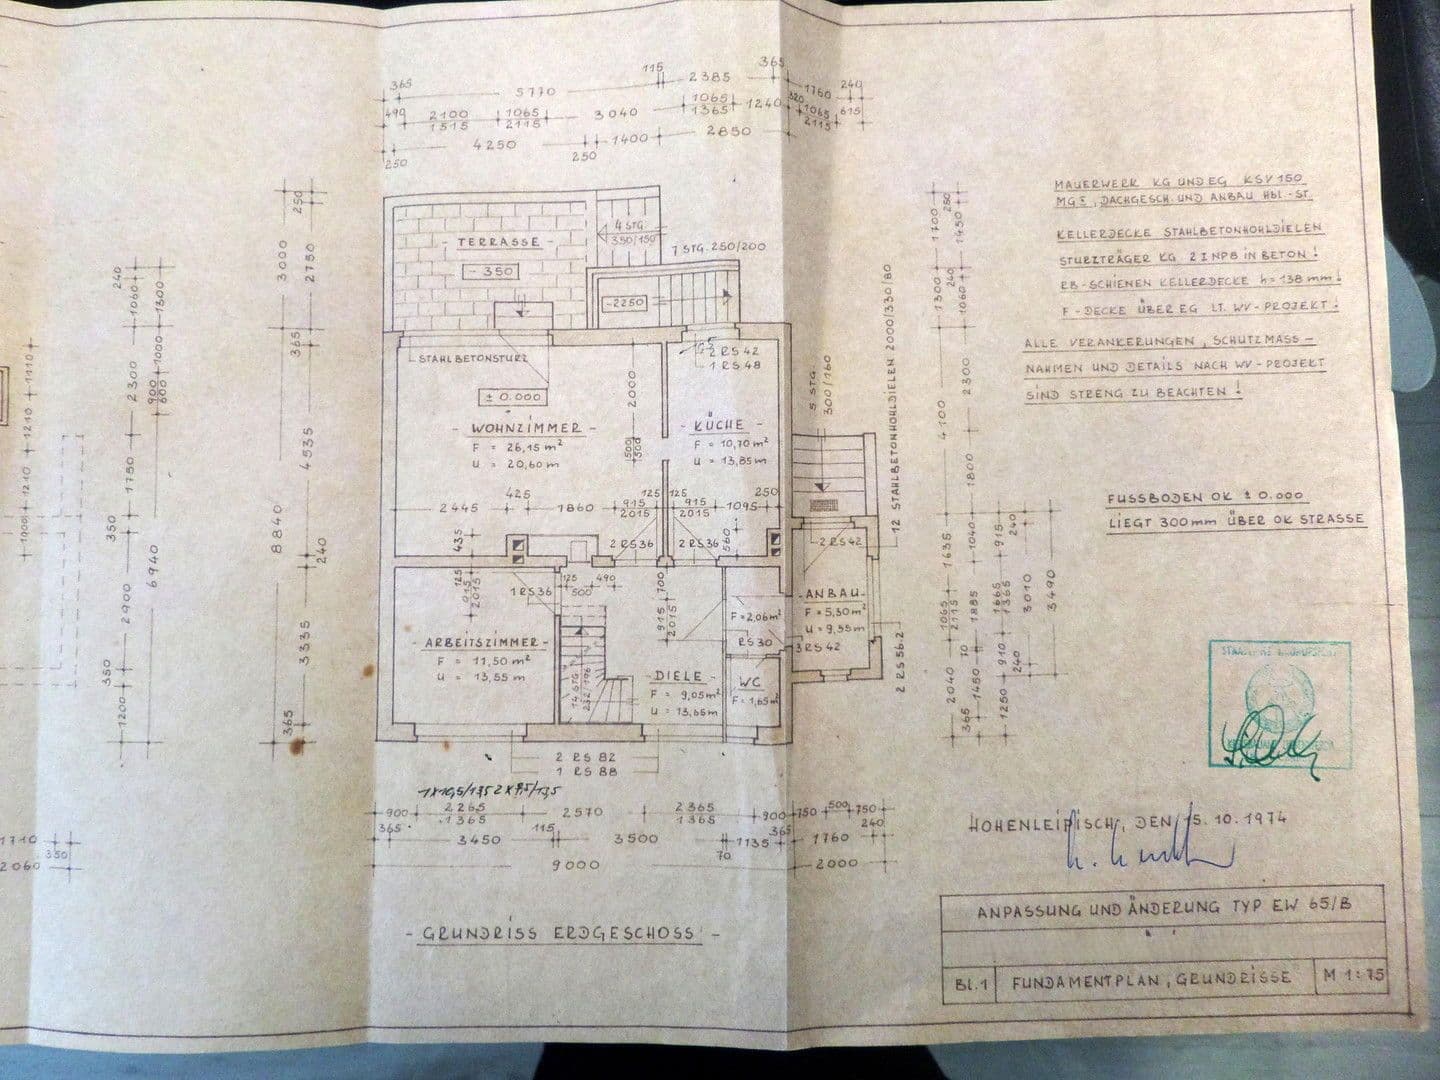 365 5770 115 2385 365 1760 240
490 2100 1065 3040 1065 1240 320 1065 615
1515 2115 1365 2115
4250 1400 2850
250 250
- TERRASSE -
- 350
4 STG.
350/150
7 STG. 250/200
- 2250
STAHLBETONSTURZ
2 RS 42
1 RS 48
± 0.000
- WOHNZIMMER -
F = 26,15 m²
U = 20,60 m
2000
- KÜCHE -
F = 10,70 m²
U = 13,85 m
5 STG
300/160
12 STAHLBETONHOHLDIELEN 2000/330/80
425 125 125 250
2445 1860 915 915 1095
2015 2015
435 2 RS 36 2 RS 36 560
2 RS 42
125 490
500
1 RS 36
700
915
2015
- ARBEITSZIMMER -
F = 11,50 m²
U = 13,55 m
14 STG
- DIELE -
F = 9,05 m²
U = 13,65 m
F = 2,06 m²
RS 30
WC
F = 1,65 m²
- ANBAU -
F = 5,30 m²
U = 9,55 m
3 RS 42
2 RS 56.2
2 RS 82
1 RS 88
900 2265 2570 2365 900 750 500 750
1365 1365
365 3450 115 3500 1135 365 1760 240
70
9000 2000
- GRUNDRISS ERDGESCHOSS -
1410
1210
1210
240
1060
1300
2300
1000
900
600
1750
350
2900
6940
350
1200
250
3000
2750
365
4535
8840
240
3335
365
1710
2060
350
1700
250
1450
1300
240
1060
2300
4100
1800
1635
1040
915
240
1065
2115
1885
1665
1365
3010
3490
2040
70
1450
910
240
365
1250
MAUERWERK KG UND EG KSV 150
MG I, DACHGESCH. UND ANBAU HBL.-ST.
KELLERDECKE STAHLBETONHOHLDIELEN
STURZTRÄGER KG 2 I NP8 IN BETON!
RB-SCHIENEN KELLERDECKE h = 138 mm!
F - DECKE ÜBER EG LT. WV - PROJEKT!
ALLE VERANKERUNGEN, SCHUTZMASS -
NAHMEN UND DETAILS NACH WV - PROJEKT
SIND STRENG ZU BEACHTEN!
FUSSBODEN OK ± 0.000
LIEGT 300 mm ÜBER OK STRASSE
HOHENLEIPISCH, DEN 15.10.1974
ANPASSUNG UND ÄNDERUNG TYP EW 65/B
Bl. 1 FUNDAMENTPLAN, GRUNDRISSE M 1:75